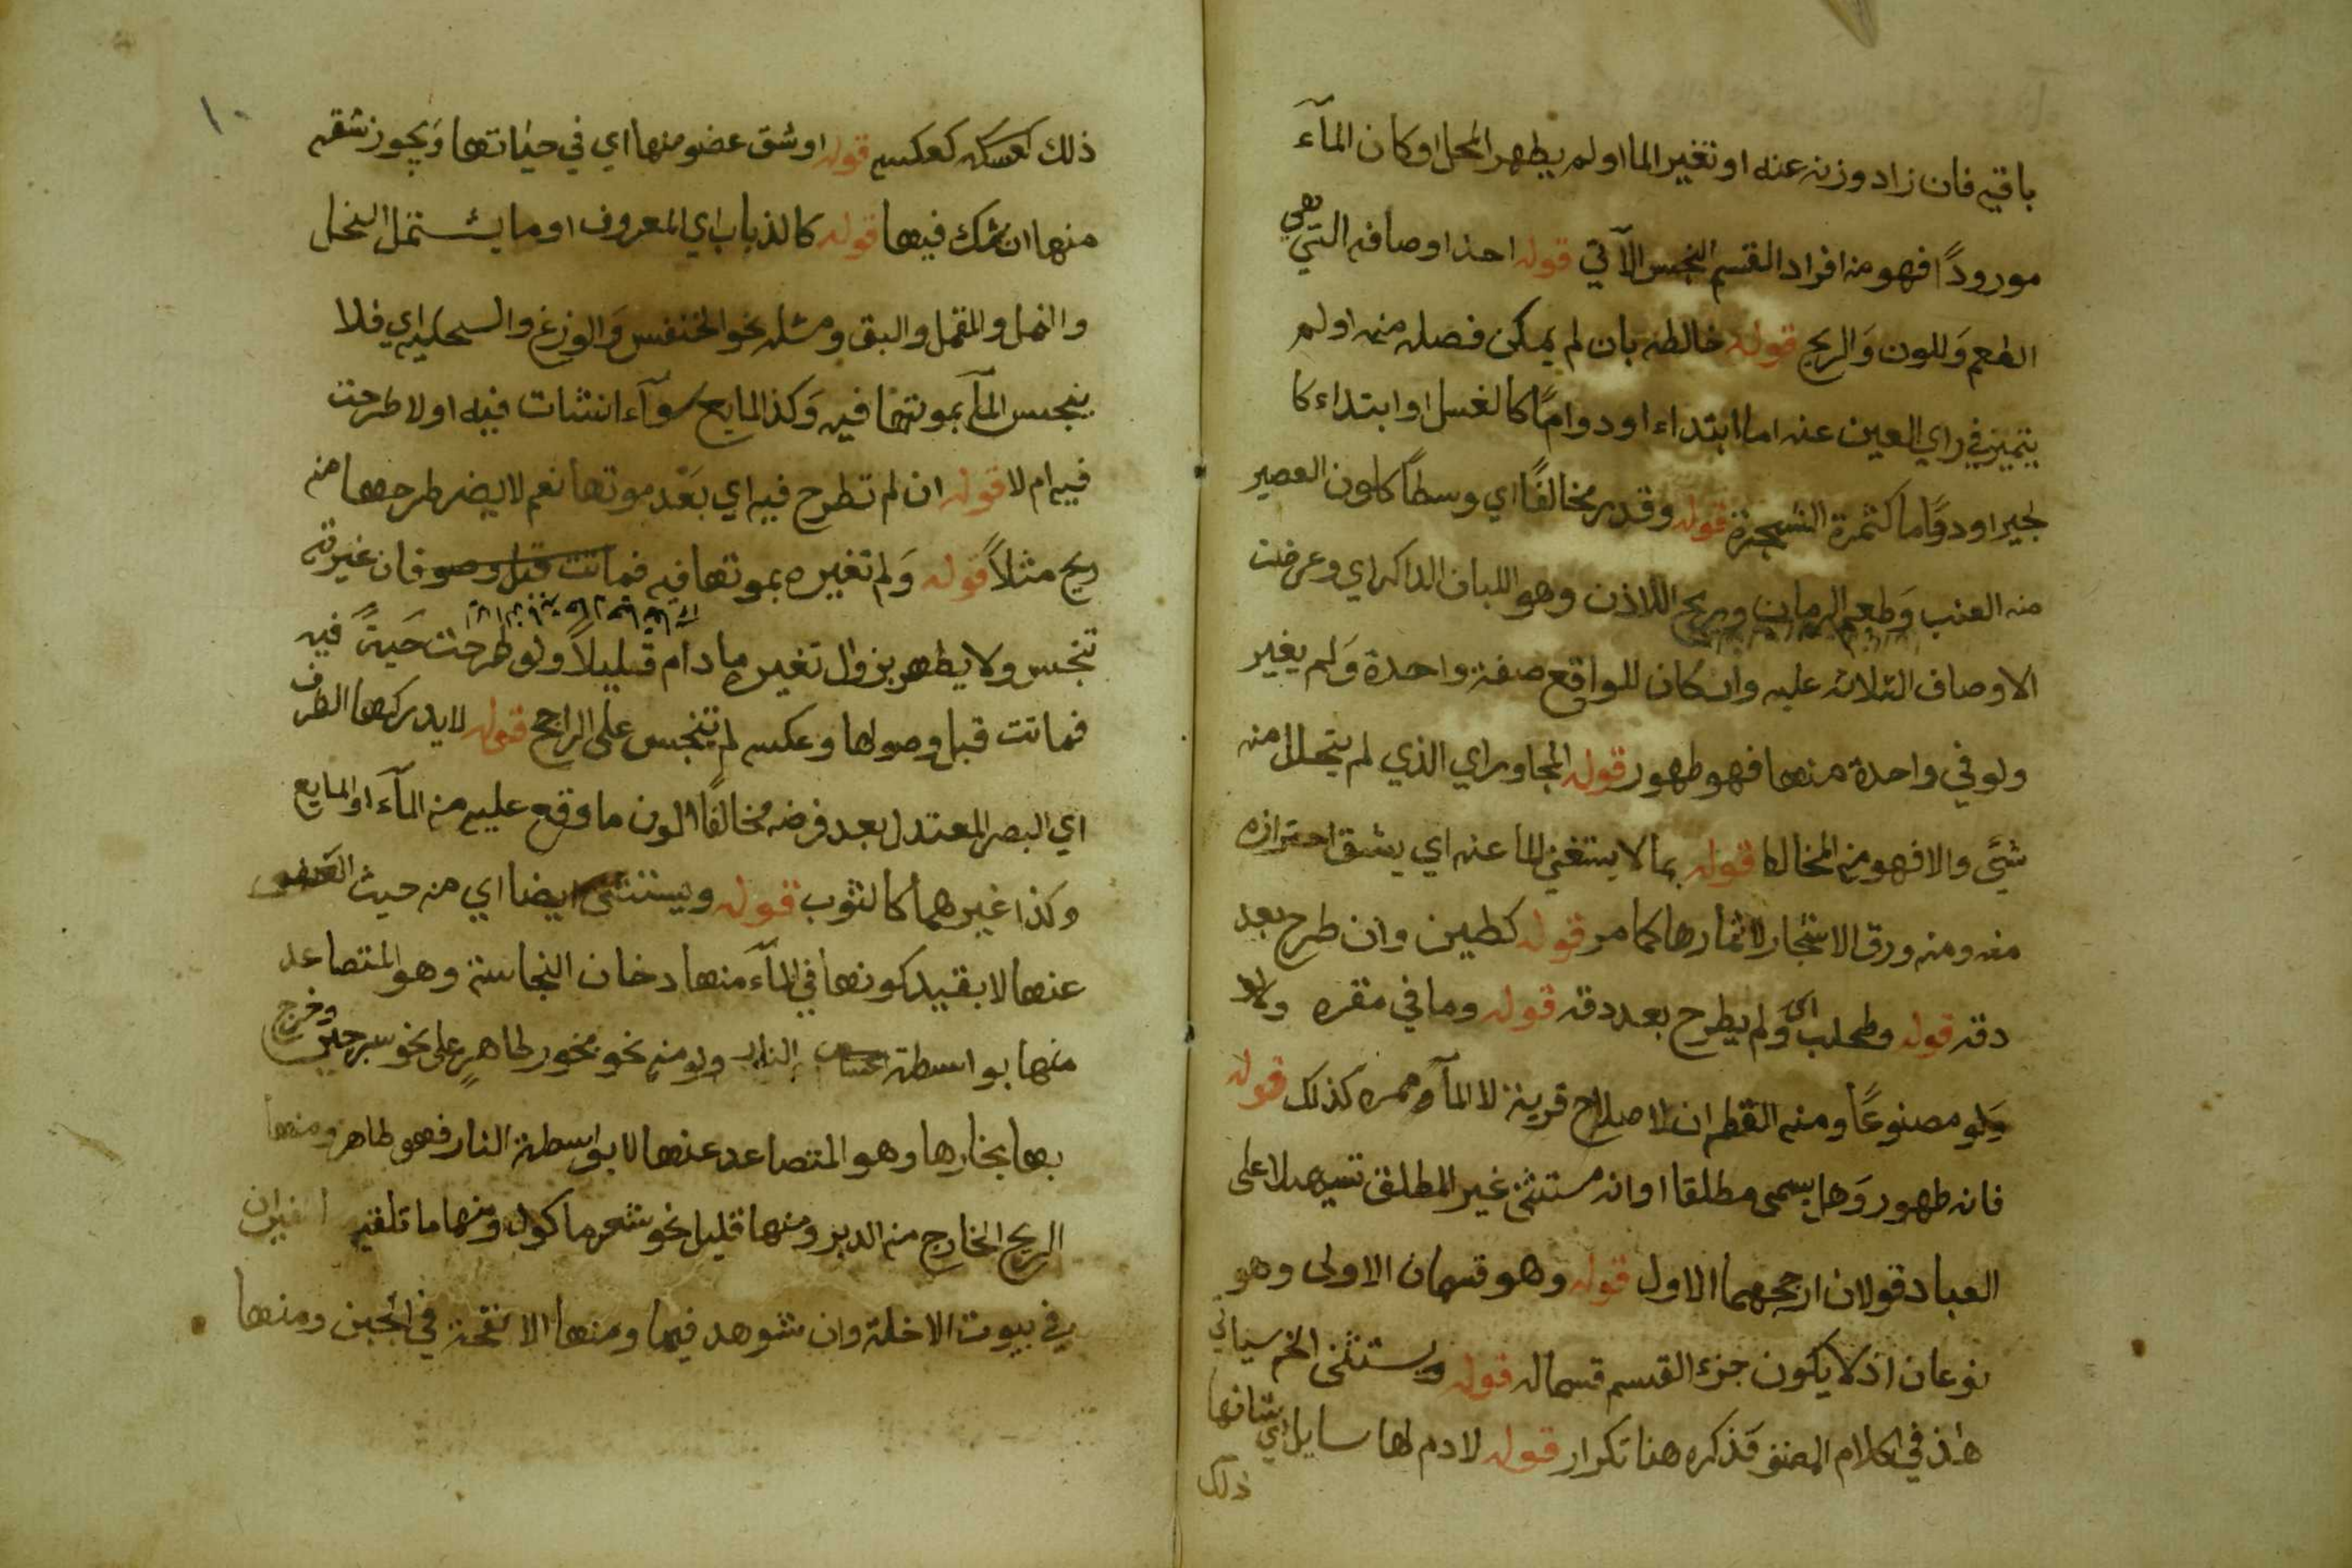 باقيه فان زاد وزنه عنه او تغير الما او لم يطهر المحل او كان المآء
مورودًا فهو من افراد القسم النجس الآتي قوله احد اوصافه التي هي
الطعم وَللون وَالريح قوله خالطه بان لم يمكن فصله منه او لم
يتميز في راي العين عنه اما ابتداء او دوامًا كالغسل او ابتداء كا
لجير او دوًاما كثمرة الشجرة قوله وقدر مخالفًا اي وسطاً كلون العصير
منه العنب وَطعم الرمان وريح اللاذن وهو اللبان الذاكر اي وعرضت
الاوصاف الثلاثه عليه وان كان للواقع صفة واحدة وَلم يغير
ولو في واحدة منها فهو طهور قوله المجاور اي الذي لم يتحلل منه
شيئ والا فهو من المخالط قوله بما لا يستغني الما عنه اي يشق احترازه
منه ومنه ورق الاشجار لا ثمارها كما مر قوله كطين وان طرح بعد
دقه قوله وطحلب اي وَلم يطرح بعد دقه قوله وما في مقره ولو
وَلو مصنوعًا ومنه القطران لاصلاح قربة لا المآ وممره كذلك قوله
فانه طهور وَهل يسمى مطلقا او انه مستثنى غير المطلق تسهيلا على
العباد قولان ارجحهما الاول قوله وهو قسمان الاولى وهو
نوعان اذ لا يكون جزء القسم قسما له قوله ويستثنى الخ سياتي
هاذ في كلام المصنف فذكره هنا تكرار قوله لا دم لها سايل اي شانها
ذلك
١٠
ذلك كعكسه قوله او شق عضو منها اي في حيٰاتها وَيجوز شقه
منها ان شك فيها قوله كالذباب اي المعروف او ما يشتمل النحل
والنمل والقمل والبق ومثله نحو الخنفس وَالوزغ والسحليه اي فلا
ينجس المآ بموتها فيه وَكذ المايع سوآء انشات فيه او لا طرحت
فيه ام لا قوله ان لم تطرح فيه اي بَعْد موتها نعم لا يضر طرحها منه
ريح مثلاً قوله وَلم تغيره بموتها فيه فماتت قبل وصو فان غيرته
تنجس ولا يطهر بزوال تغيره ما دام قليلاً ولو طرحت حَيةً فيه
فماتت قبل وصولها وعكسه لم يتنجس على الراجح قوله لا يدركها الطرف
اي البصر المعتدل بعد فرضه مخالفًا للون ما وقع عليه من المآء او المايع
وكذا غيرهما كالثوب قوله ويستثنى ايضا اي من حيث العفو
عنها لا بقيد كونها في المآء منها دخان النجاسة وهو المتصاعد
منها بواسطة النار ولو منه نحو بخور طاهرٍ على نحو سرجين وخرج
بها بخارها وهو المتصاعد عنها لا بواسطة النار فهو طاهر ومنها
الريح الخارج من الدبر ومنها قليل نحو شعر ماكول ومنها ما تلقيه الفيران
في بيوت الاخلة وان شوهد فيها ومنها الانفحة في الجبن ومنها